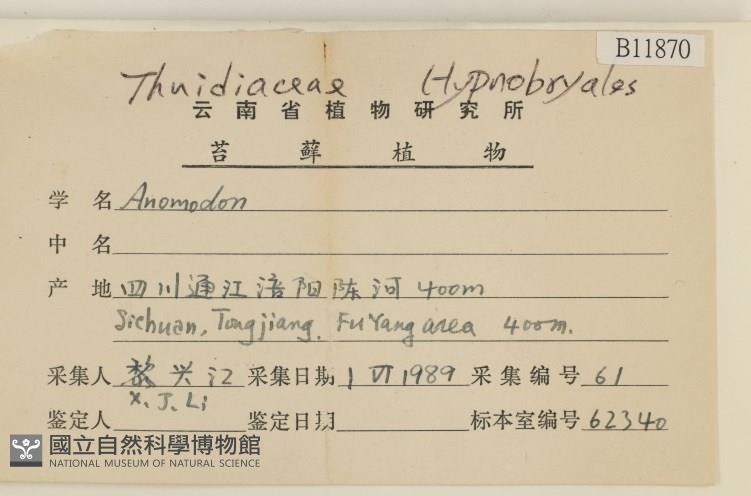 B11870
Thuidiaceae Hypnobryales
云南省植物研究所
苔藓植物
学名 Anomodon
中名
产地 四川通江涪阳陈河 400m
Sichuan, Tongjiang. FuYang area 400m.
采集人 黎兴江 采集日期 1 VI 1989 采集编号 61
X. J. Li
鉴定人 鉴定日期 标本室编号 62340
國立自然科學博物館
NATIONAL MUSEUM OF NATURAL SCIENCE